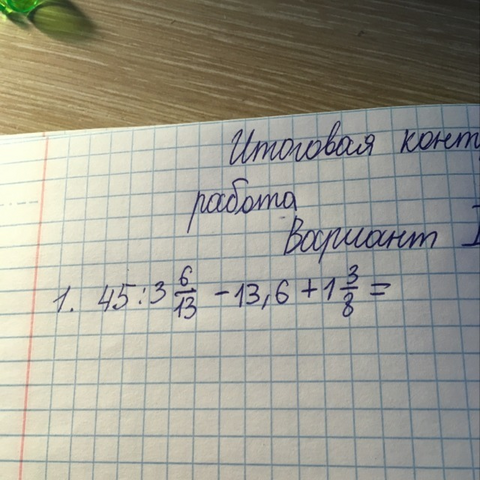 Итоговая конт
работа
Вариант I
1. 45 : 3 6/13 - 13,6 + 1 3/8 =